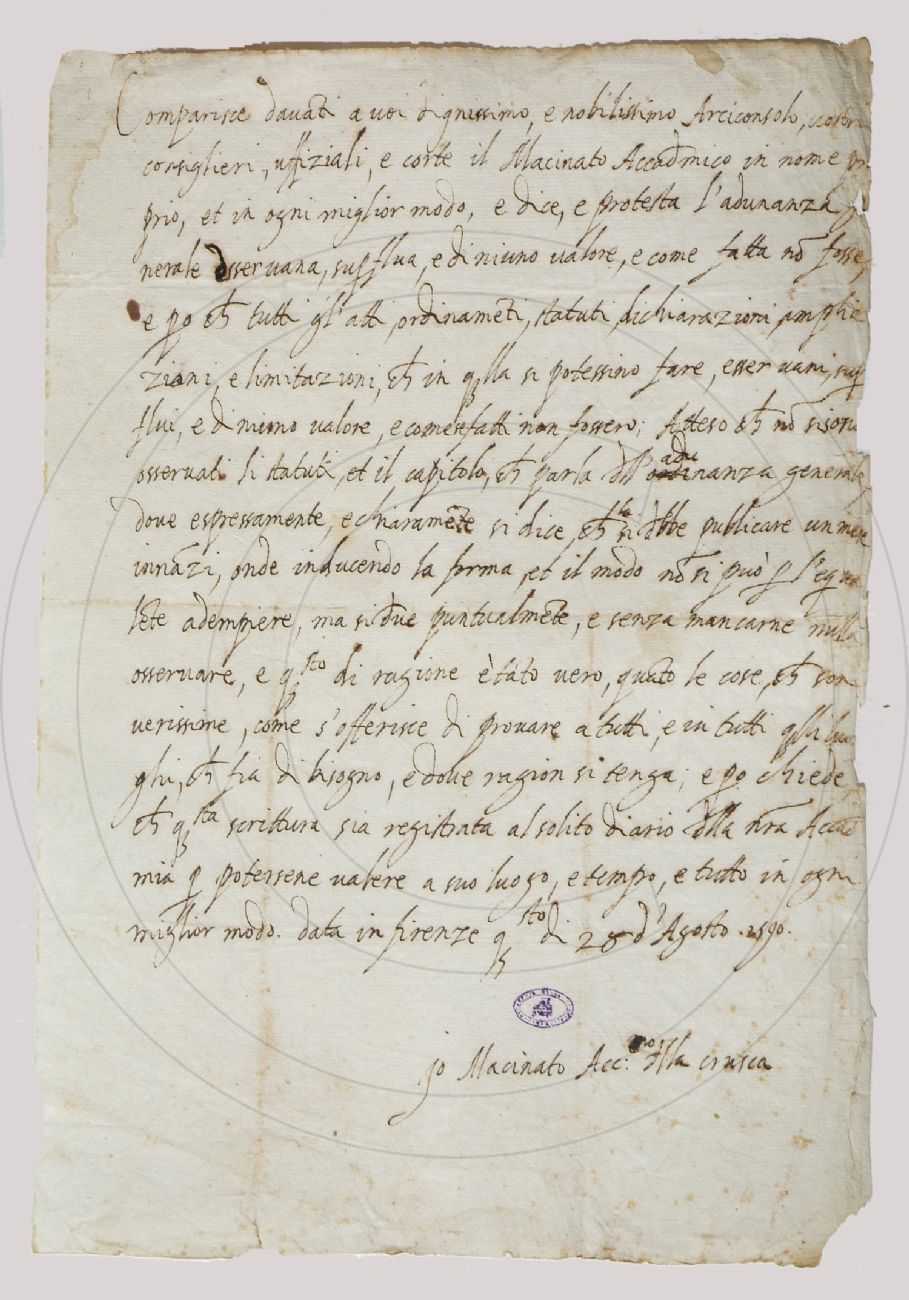 Comparisce davãti a voi dignissimo, e nobilissimo Arciconsolo, vostri
consiglieri, uffiziali, e corte il Macinato Accad̃mico in nome pro
prio, et in ogni miglior modo, e dice, e protesta l'adunanza ge
nerale esser vana, supflua, e di niuno valore, e come fatta nõ fosse,
e pò ch̃ tutti gl'atti, ordinamẽti, statuti, dichiarazioni, amplia
zioni, e limitazioni, ch̃ in qlla si potessino fare, esser vani, sup
flui, e di niuno valore, e come fatti non fossero; Atteso ch̃ nõ si sono
osservati li statuti, et il capitolo, ch̃ parla dll' adunanza generale,
dove espressamente, e chiaramẽte si dice, ch̃ la si dbbe publicare un mese
innãzi, onde inducendo la forma, et il modo nõ si può p l'equa
lẽte adempiere, ma si dve puntualmẽte, e senza mancarne nulla
osservare, e qsto di ragione è tãto vero, quãto le cose, ch̃ son
verissime, come s'offerisce di provare a tutti, e in tutti qlli luo
ghi, ch̃ fia di bisogno, e dove ragion si tenga; e pò chiede,
ch̃ qsta scrittura sia registrata al solito diario dlla nr̃a Accad̃
mia p potersene valere a suo luogo, e tempo, e tutto in ogni
miglior modo. data in firenze qsto dì 28 d'Agosto .1590.
Jo Macinato Acc:co dlla crusca